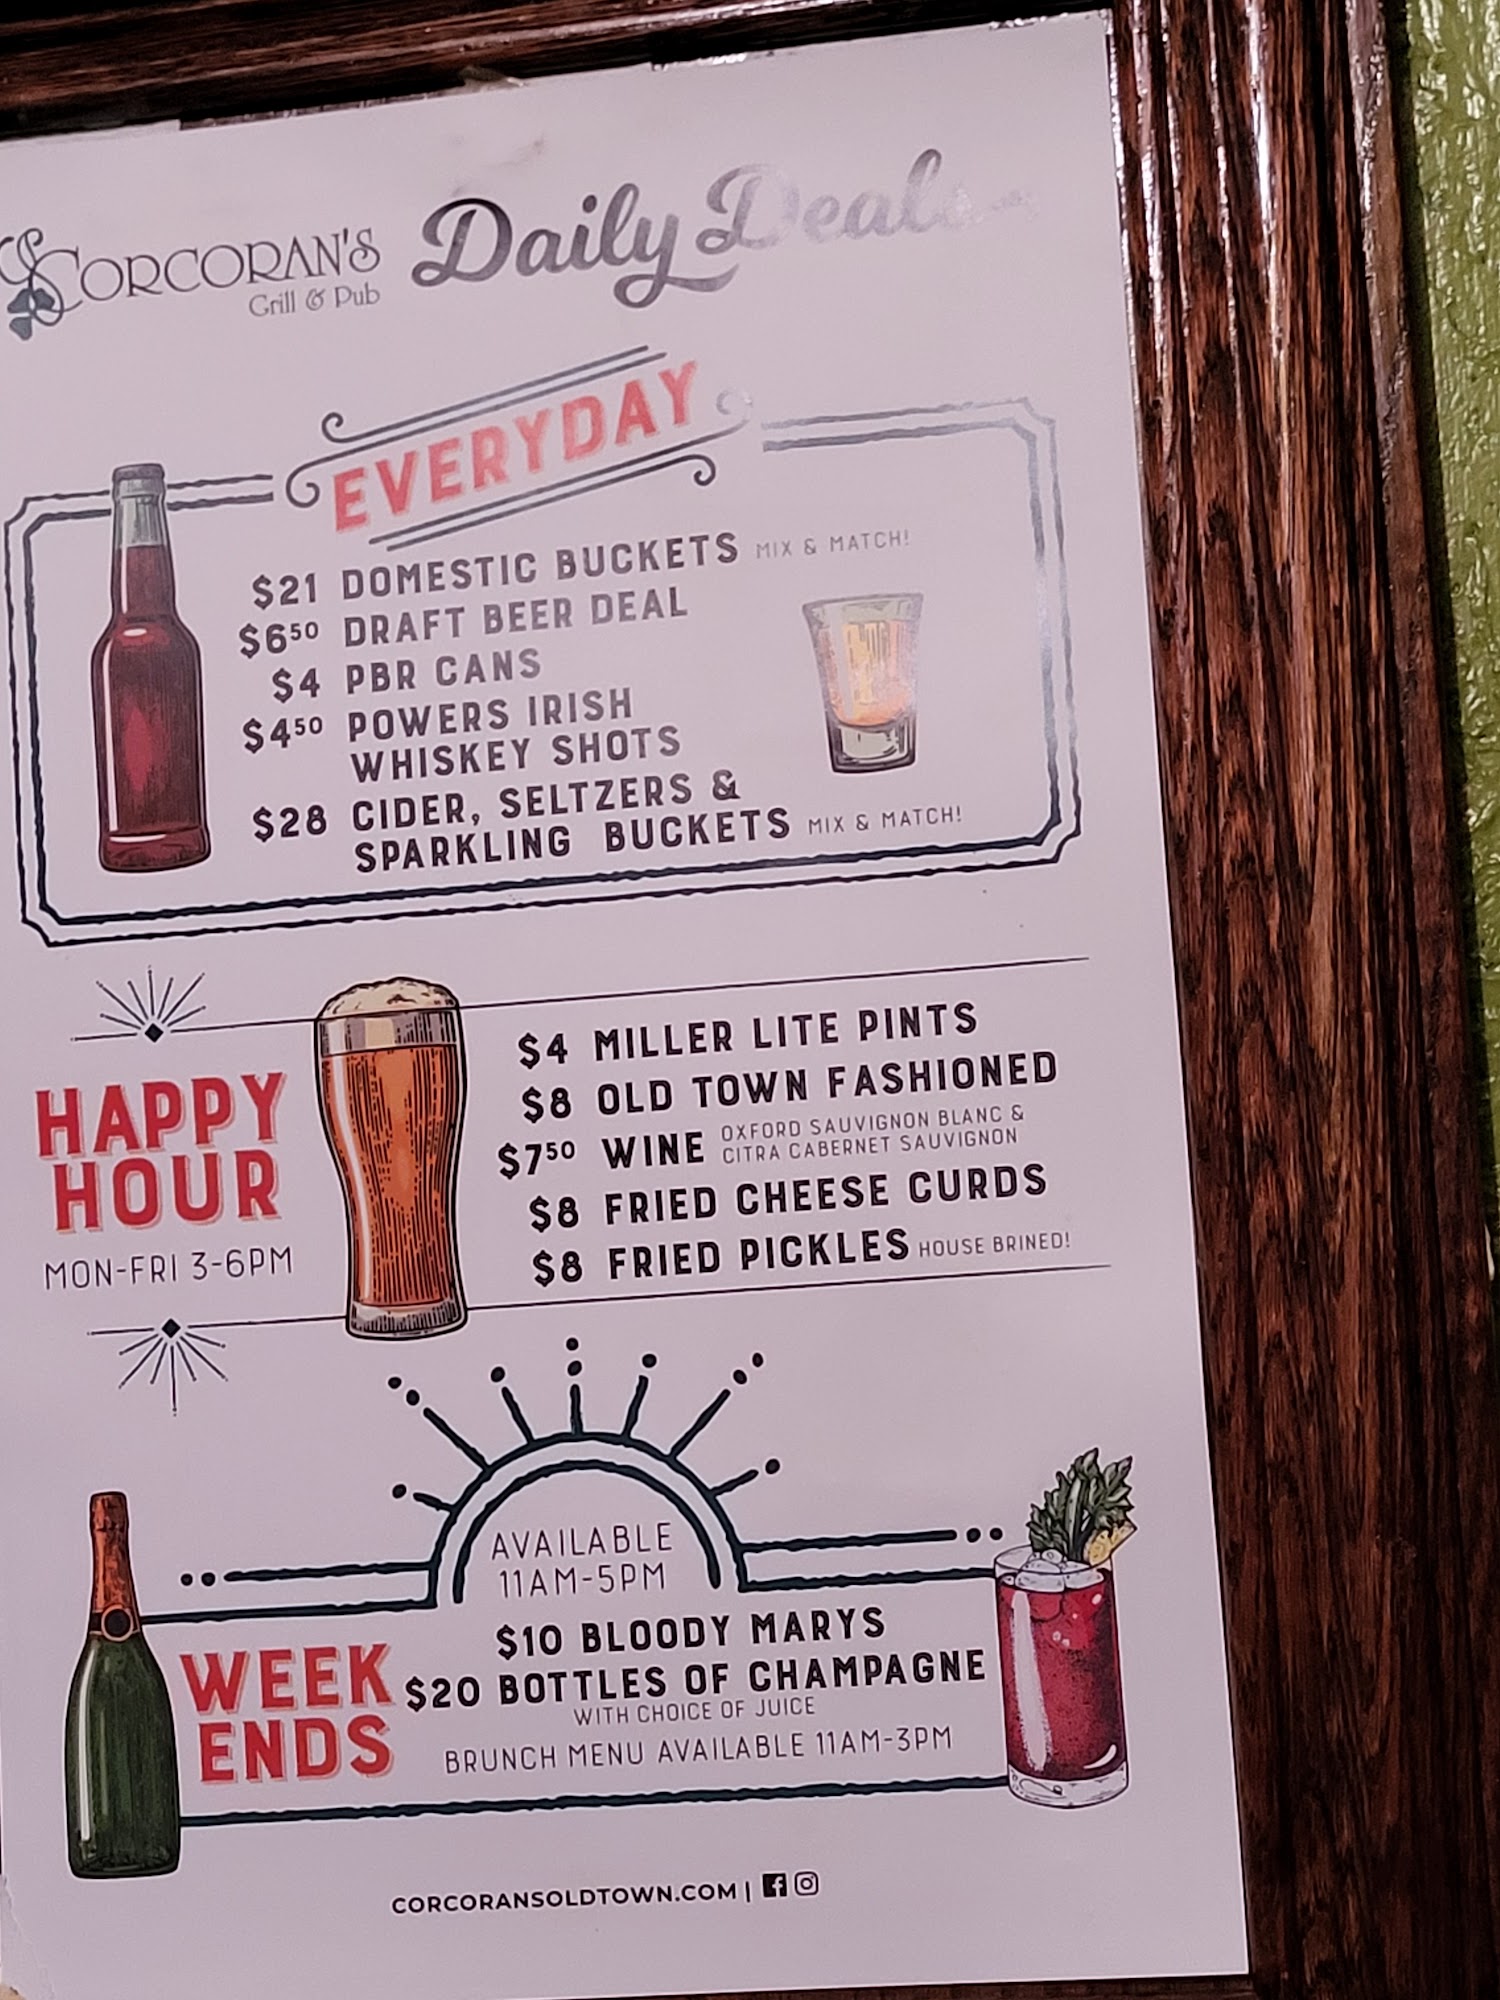 CORCORAN'S
Grill & Pub
Daily Deals
EVERYDAY
$21 DOMESTIC BUCKETS MIX & MATCH!
$6⁵⁰ DRAFT BEER DEAL
$4 PBR CANS
$4⁵⁰ POWERS IRISH
WHISKEY SHOTS
$28 CIDER, SELTZERS &
SPARKLING BUCKETS MIX & MATCH!
HAPPY
HOUR
MON-FRI 3-6PM
$4 MILLER LITE PINTS
$8 OLD TOWN FASHIONED
$7⁵⁰ WINE OXFORD SAUVIGNON BLANC &
CITRA CABERNET SAUVIGNON
$8 FRIED CHEESE CURDS
$8 FRIED PICKLES HOUSE BRINED!
AVAILABLE
11AM-5PM
WEEK
ENDS
$10 BLOODY MARYS
$20 BOTTLES OF CHAMPAGNE
WITH CHOICE OF JUICE
BRUNCH MENU AVAILABLE 11AM-3PM
CORCORANSOLDTOWN.COM |